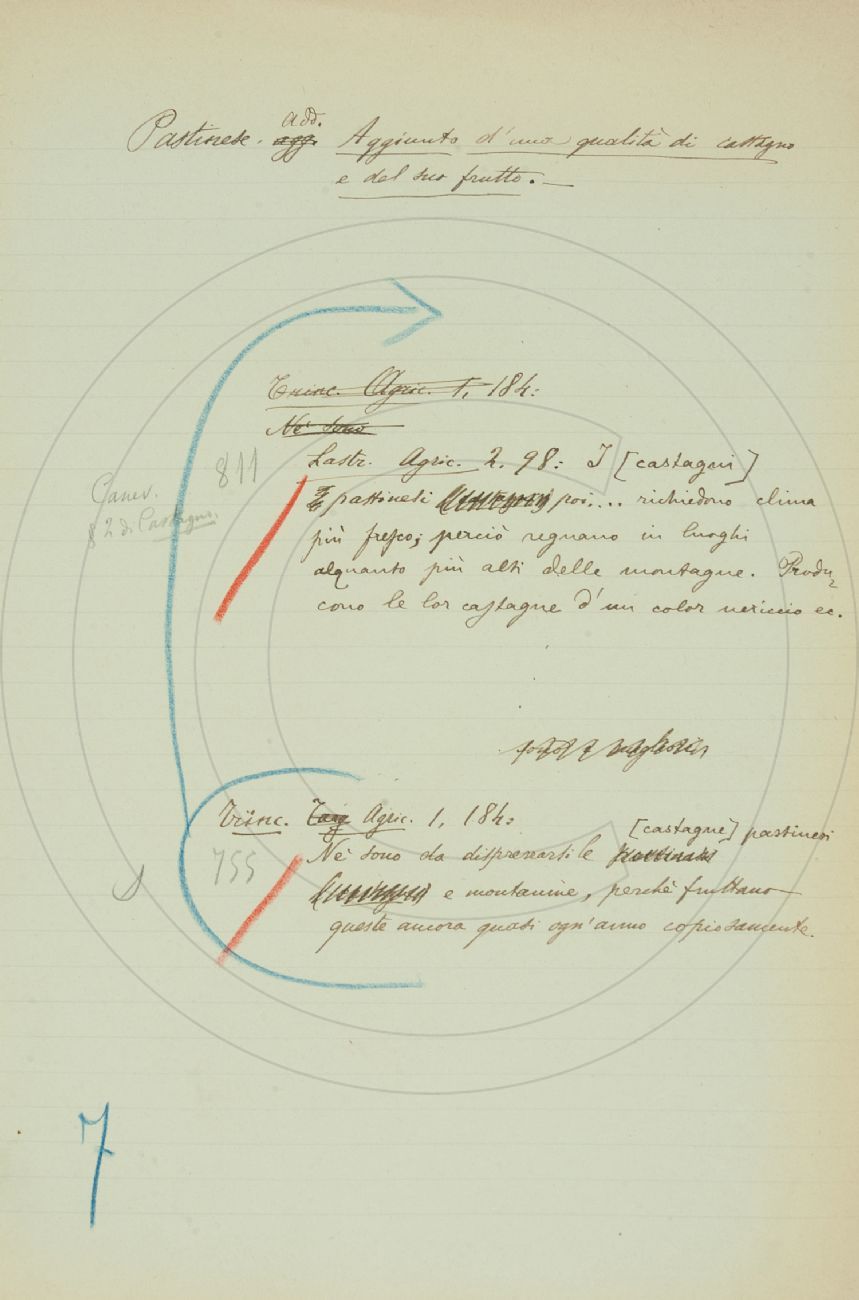 Pastinese. add. agg. Aggiunto d'una qualità di castagno
e del suo frutto. —
Trinc. Agric. 1, 184:
Nè sono
Lastr. Agric. 2. 98: I [castagni]
pastinesi poi.... richiedono clima
più fresco; perciò regnano in luoghi
alquanto più alti delle montagne. Produ-
cono le lor castagne d'un color nericcio ec.
811
Canev.
§ 2 di Castagno.
Trinc. Agric. 1, 184:
[castagne] pastinesi
Nè sono da disprezzarsi le
755
e montanine, perchè fruttano
queste ancora quasi ogn'anno copiosamente.
7